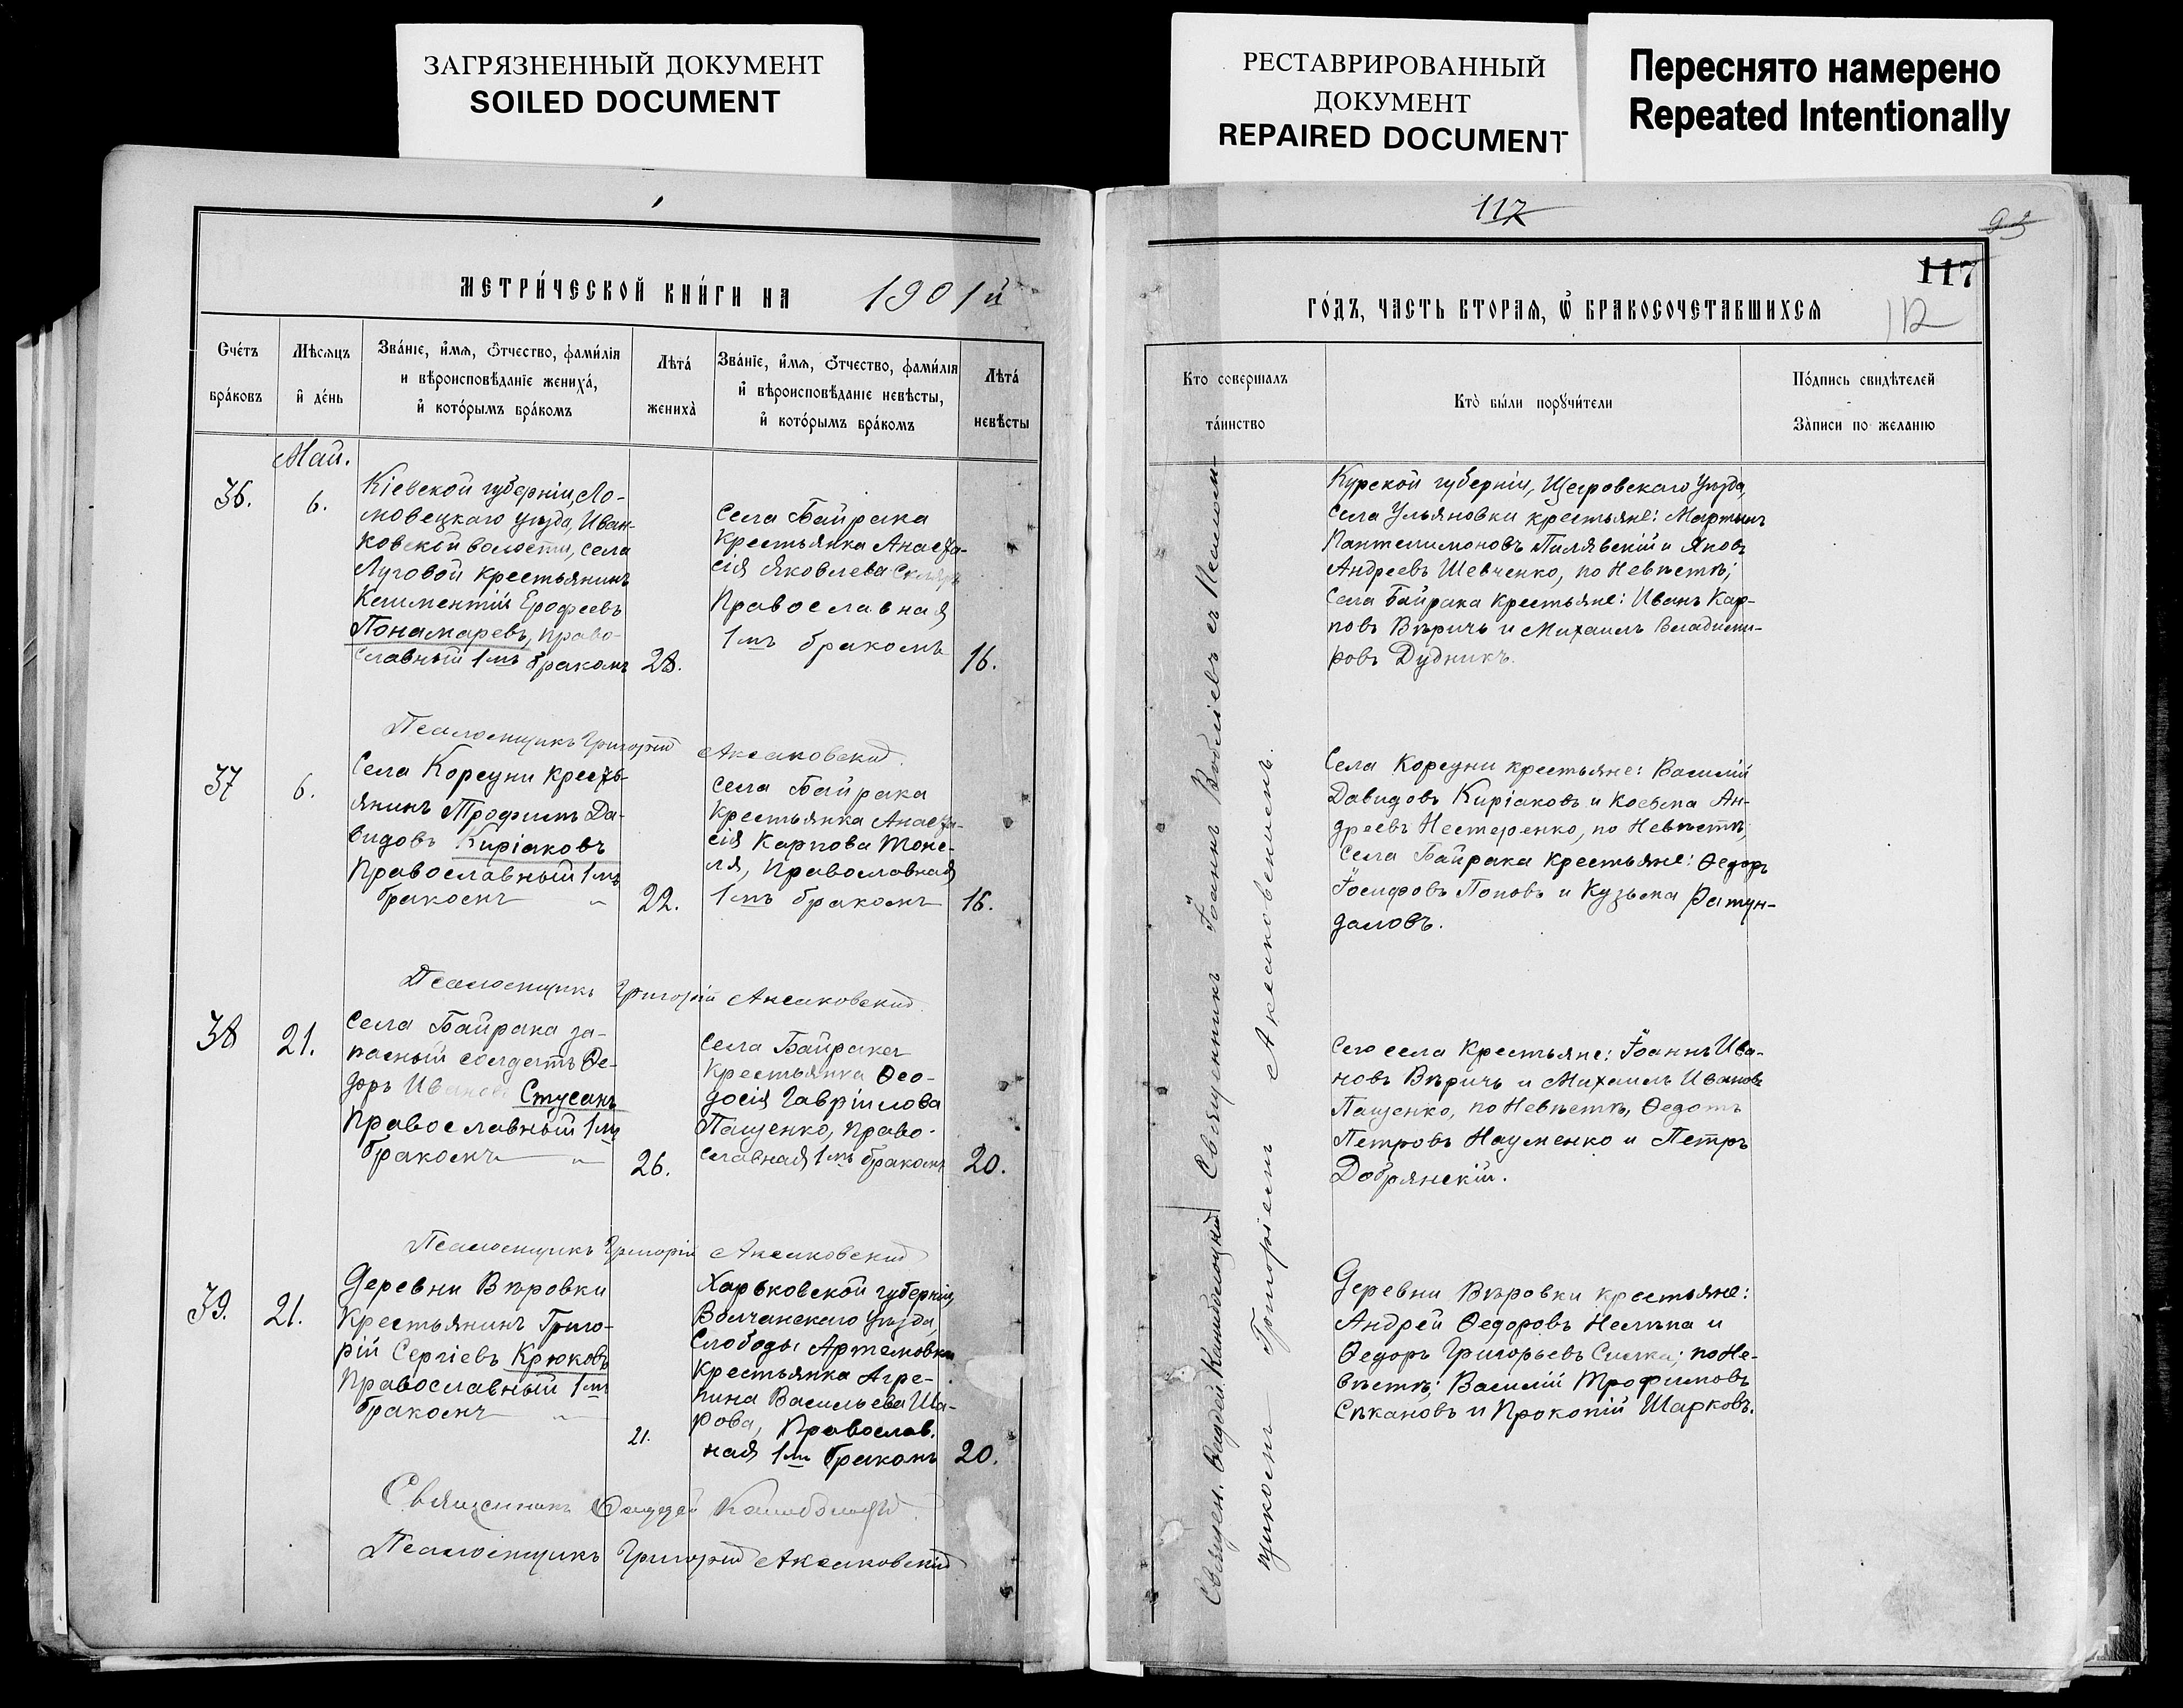 ЗАГРЯЗНЕННЫЙ ДОКУМЕНТ
SOILED DOCUMENT
РЕСТАВРИРОВАННЫЙ
ДОКУМЕНТ
REPAIRED DOCUMENT
Переснято намерено
Repeated Intentionally
МЕТРИ́ЧЕСКОЙ КНИ́ГИ НА 1901й
Сче́тъ
бра́ковъ
Мѣсяцъ
и҆ де́нь
Зва́нїе, и҆́мя, ѻ҆́тчество, фами́лїя
и вѣроисповѣ́данїе жениха́,
и҆ кото́рымъ бра́комъ
Лѣта́
жениха̀
Зва́нїе, и҆́мя, ѻ҆́тчество, фами́лїя
и҆ вѣроисповѣ́данїе невѣ́сты,
и҆ кото́рымъ бра́комъ
Лѣта́
невѣ́сты
Май.
36.
6.
Кіевской губерніи,
Иван-
ковской волости, села
Луговой крестьянинъ
Климентій Ерофеевъ
Пономаревъ, право-
славный 1мъ бракомъ
28.
Села Байрака
Крестьянка Анаста-
сія Яковлева
Православная
1мъ бракомъ
16.
Псаломщикъ Григорій Аксаковский
37
6.
Села Корсуни кресть-
янинъ Трофимъ Да-
видовъ Киріаковъ
Православный 1мъ
бракомъ
22.
Села Байрака
Крестьянка Анаста-
сія Карпова
Православная
1мъ бракомъ
16.
Псаломщикъ Григорій Аксаковский
38
21.
Села Байрака за-
пасный солдатъ Ѳе-
доръ Ивановъ Стусанъ
Православный 1мъ
бракомъ
26.
Села Байрака
Крестьянка Ѳео-
досія Гавріилова
Пащенко, право-
славная 1мъ бракомъ
20.
Псаломщикъ Григорій Аксаковский
39.
21.
Деревни Вѣровки
Крестьянинъ Григо-
рій Сергіевъ Крюковъ
Православный 1мъ
бракомъ
21.
Харьковской губерніи,
Волчанскаго уѣзда,
Слободы Артемовки
крестьянка Агре-
пина Васильева Ша-
рова, Православ.
ная 1мъ бракомъ
20.
Священникъ
Псаломщикъ Григорій Аксаковскій
117
93
117
112
ГО́ДЪ, ЧАСТЬ ВТОРАЯ, Ѽ БРАКОСОЧЕТАВШИХСЯ
Кто соверша́лъ
та́инство
Кто̀ бы́ли порꙋчи́тели
По́дпись свидѣ́телей
За́писи по жела́нїю
Священникъ Іоаннъ съ Псалом-
щикомъ Григоріемъ Аксаковскимъ.
Курской губерніи, Щегровскаго уѣзда,
Села Ульяновки крестьяне: Мартынъ
Пантелимоновъ Пилявскій и Яковъ
Андреевъ Шевченко, по Невѣстѣ;
Села Байрака крестьяне: Иванъ Кар-
повъ Вѣричь и Михаилъ Владими-
ровъ Дудникъ.
Села Корсуни крестьяне: Василій
Давидовъ Киріаковъ и Косьма Ан-
дреевъ Нестеренко, по Невѣстѣ,
Села Байрака крестьяне: Ѳедоръ
Іосифовъ Поповъ и Кузьма
даловъ.
Сего села Крестьяне: Іоаннъ Ива-
новъ Вѣричь и Михаилъ Ивановъ
Пащенко, по Невѣстѣ, Ѳедотъ
Петровъ Науменко и Петръ
Добрянскій.
Деревни Вѣровки крестьяне:
Андрей Ѳедоровъ и
Ѳедоръ Григорьевъ по Не-
вѣстѣ; Василій Трофимовъ
Сѣкановъ и Прокопій Шарковъ.